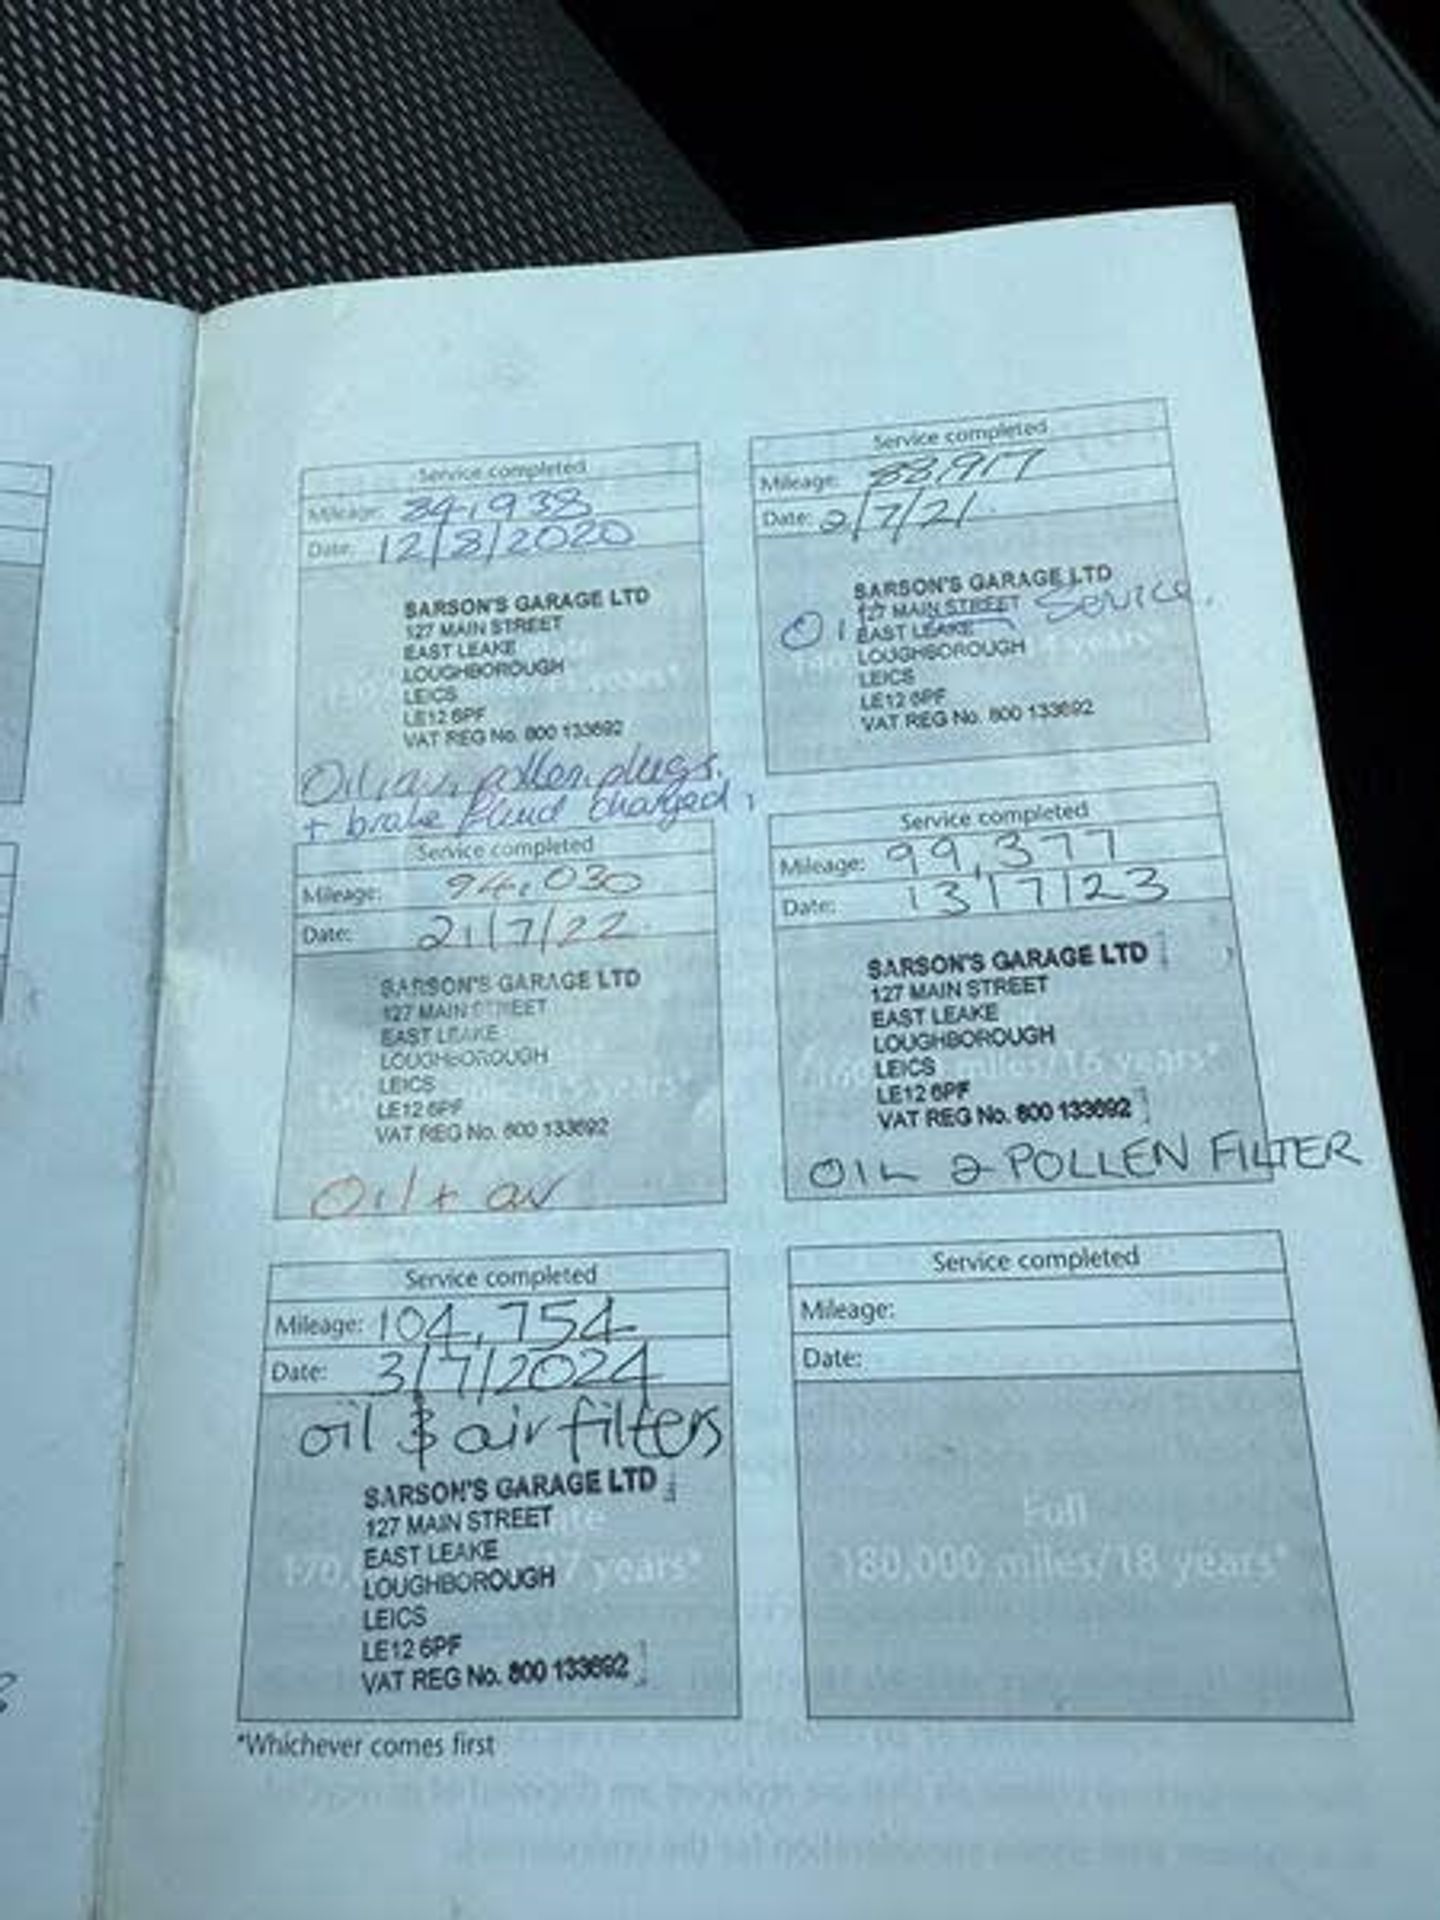 Service completed
Mileage: 84,938
Date: 12/8/2020
SARSON'S GARAGE LTD
127 MAIN STREET
EAST LEAKE
LOUGHBOROUGH
LEICS
LE12 6PF
VAT REG No. 800 133692
Oil, air, pollen, plugs,
+ brake fluid changed,
Service completed
Mileage: 88,917
Date: 2/7/21
SARSON'S GARAGE LTD
127 MAIN STREET
EAST LEAKE
LOUGHBOROUGH
LEICS
LE12 6PF
VAT REG No. 800 133692
Service.
Service completed
Mileage: 94,030
Date: 21/7/22
SARSON'S GARAGE LTD
127 MAIN STREET
EAST LEAKE
LOUGHBOROUGH
LEICS
LE12 6PF
VAT REG No. 800 133692
Oil + air
Service completed
Mileage: 99,377
Date: 13/7/23
SARSON'S GARAGE LTD
127 MAIN STREET
EAST LEAKE
LOUGHBOROUGH
LEICS
miles/16 years*
LE12 6PF
VAT REG No. 800 133692
OIL & POLLEN FILTER
Service completed
Mileage: 104,754
Date: 3/7/2024
oil & air filters
SARSON'S GARAGE LTD
127 MAIN STREET
EAST LEAKE
years*
LOUGHBOROUGH
LEICS
LE12 6PF
VAT REG No. 800 133692
Service completed
Mileage:
Date:
Full
180,000 miles/18 years*
*Whichever comes first